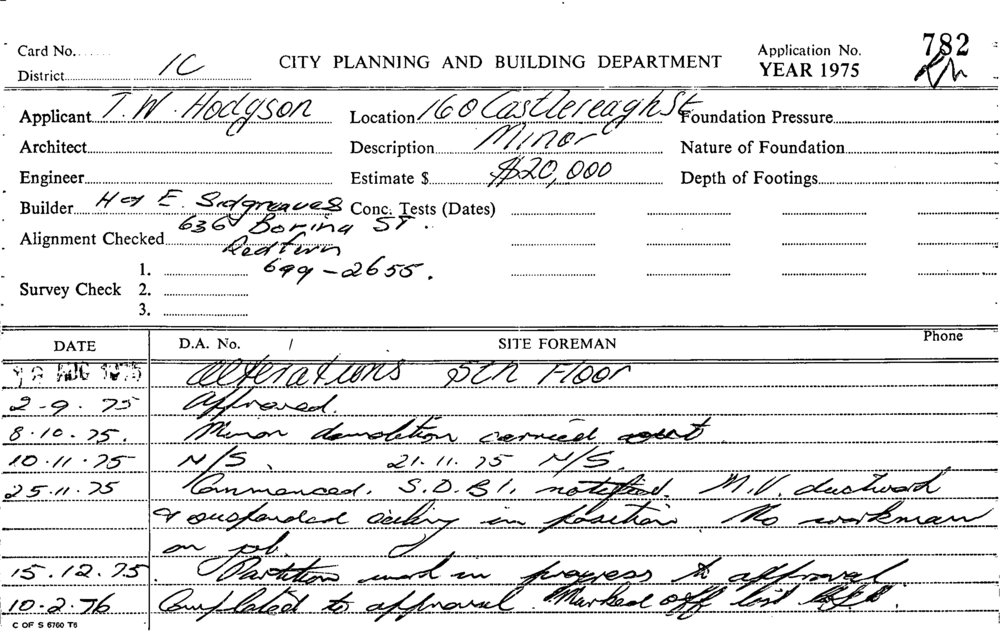 Card No. 782
District 1C CITY PLANNING AND BUILDING DEPARTMENT Application No. YEAR 1975
Applicant T. W. Hodgson Location 160 Castlereagh St Foundation Pressure
Architect Description Minor Nature of Foundation
Engineer Estimate $ $20,000 Depth of Footings
Builder H & E. Sidgreaves Conc. Tests (Dates)
636 St.
Alignment Checked Redfern
1. 699-2655.
Survey Check 2.
3.
DATE D.A. No. / SITE FOREMAN Phone
AUG 1975 Alterations 5th Floor
2-9-75 Approved.
8-10-75. Minor demolition carried out
10-11-75 N/S. 21.11.75 N/S.
25.11.75 Commenced. S.D.B.I. notified. M.V. ductwork
& suspended ceiling in position. No workman
on job.
15.12.75. Partition work in progress to approval
10-2.76 Completed to approval. Marked off list
C OF S 6760 T6